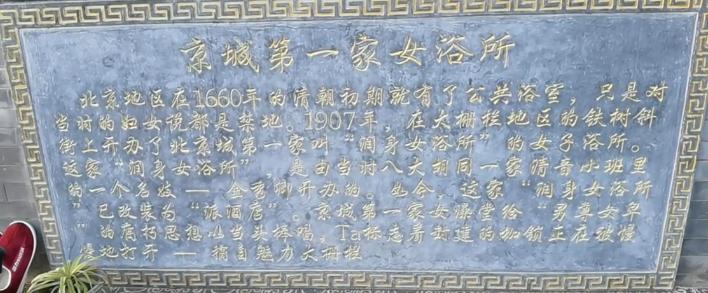 京城第一家女浴所
北京地区在1660年的清朝初期就有了公共浴室，只是对
当时的妇女说都是禁地。1907年，在大栅栏地区的铁树斜
街上开办了北京城第一家叫“润身女浴所”的女子浴所。
这家“润身女浴所”，是由当时八大胡同一家清音小班里
的一个名妓——金秀卿开办的。如今，这家“润身女浴所
”已改装为“派酒店”。京城第一家女澡堂给“男尊女卑
”的腐朽思想以当头棒喝。Ta标志着封建的枷锁正在被慢
慢地打开——摘自魅力大栅栏